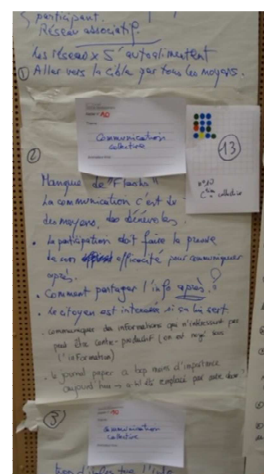 participant.
Réseau associatif.
Les réseaux s'autoalimentent
① Aller vers la cible par tous les moyens.
Communication
collective
13
n°10
C° collective
②
Manque de "Flash"
La communication c'est de
des moyens, des bénévoles.
• La participation doit faire la preuve
de son efficacité pour communiquer
après.
• Comment partager l'info après ?
• Le citoyen est intéressé si ça lui sert.
• communiquer des informations qui n'intéressent pas
peut être contre-productif (on est noyé sous
l'information)
• le journal papier a trop d'importance
aujourd'hui
3
Communication
collective